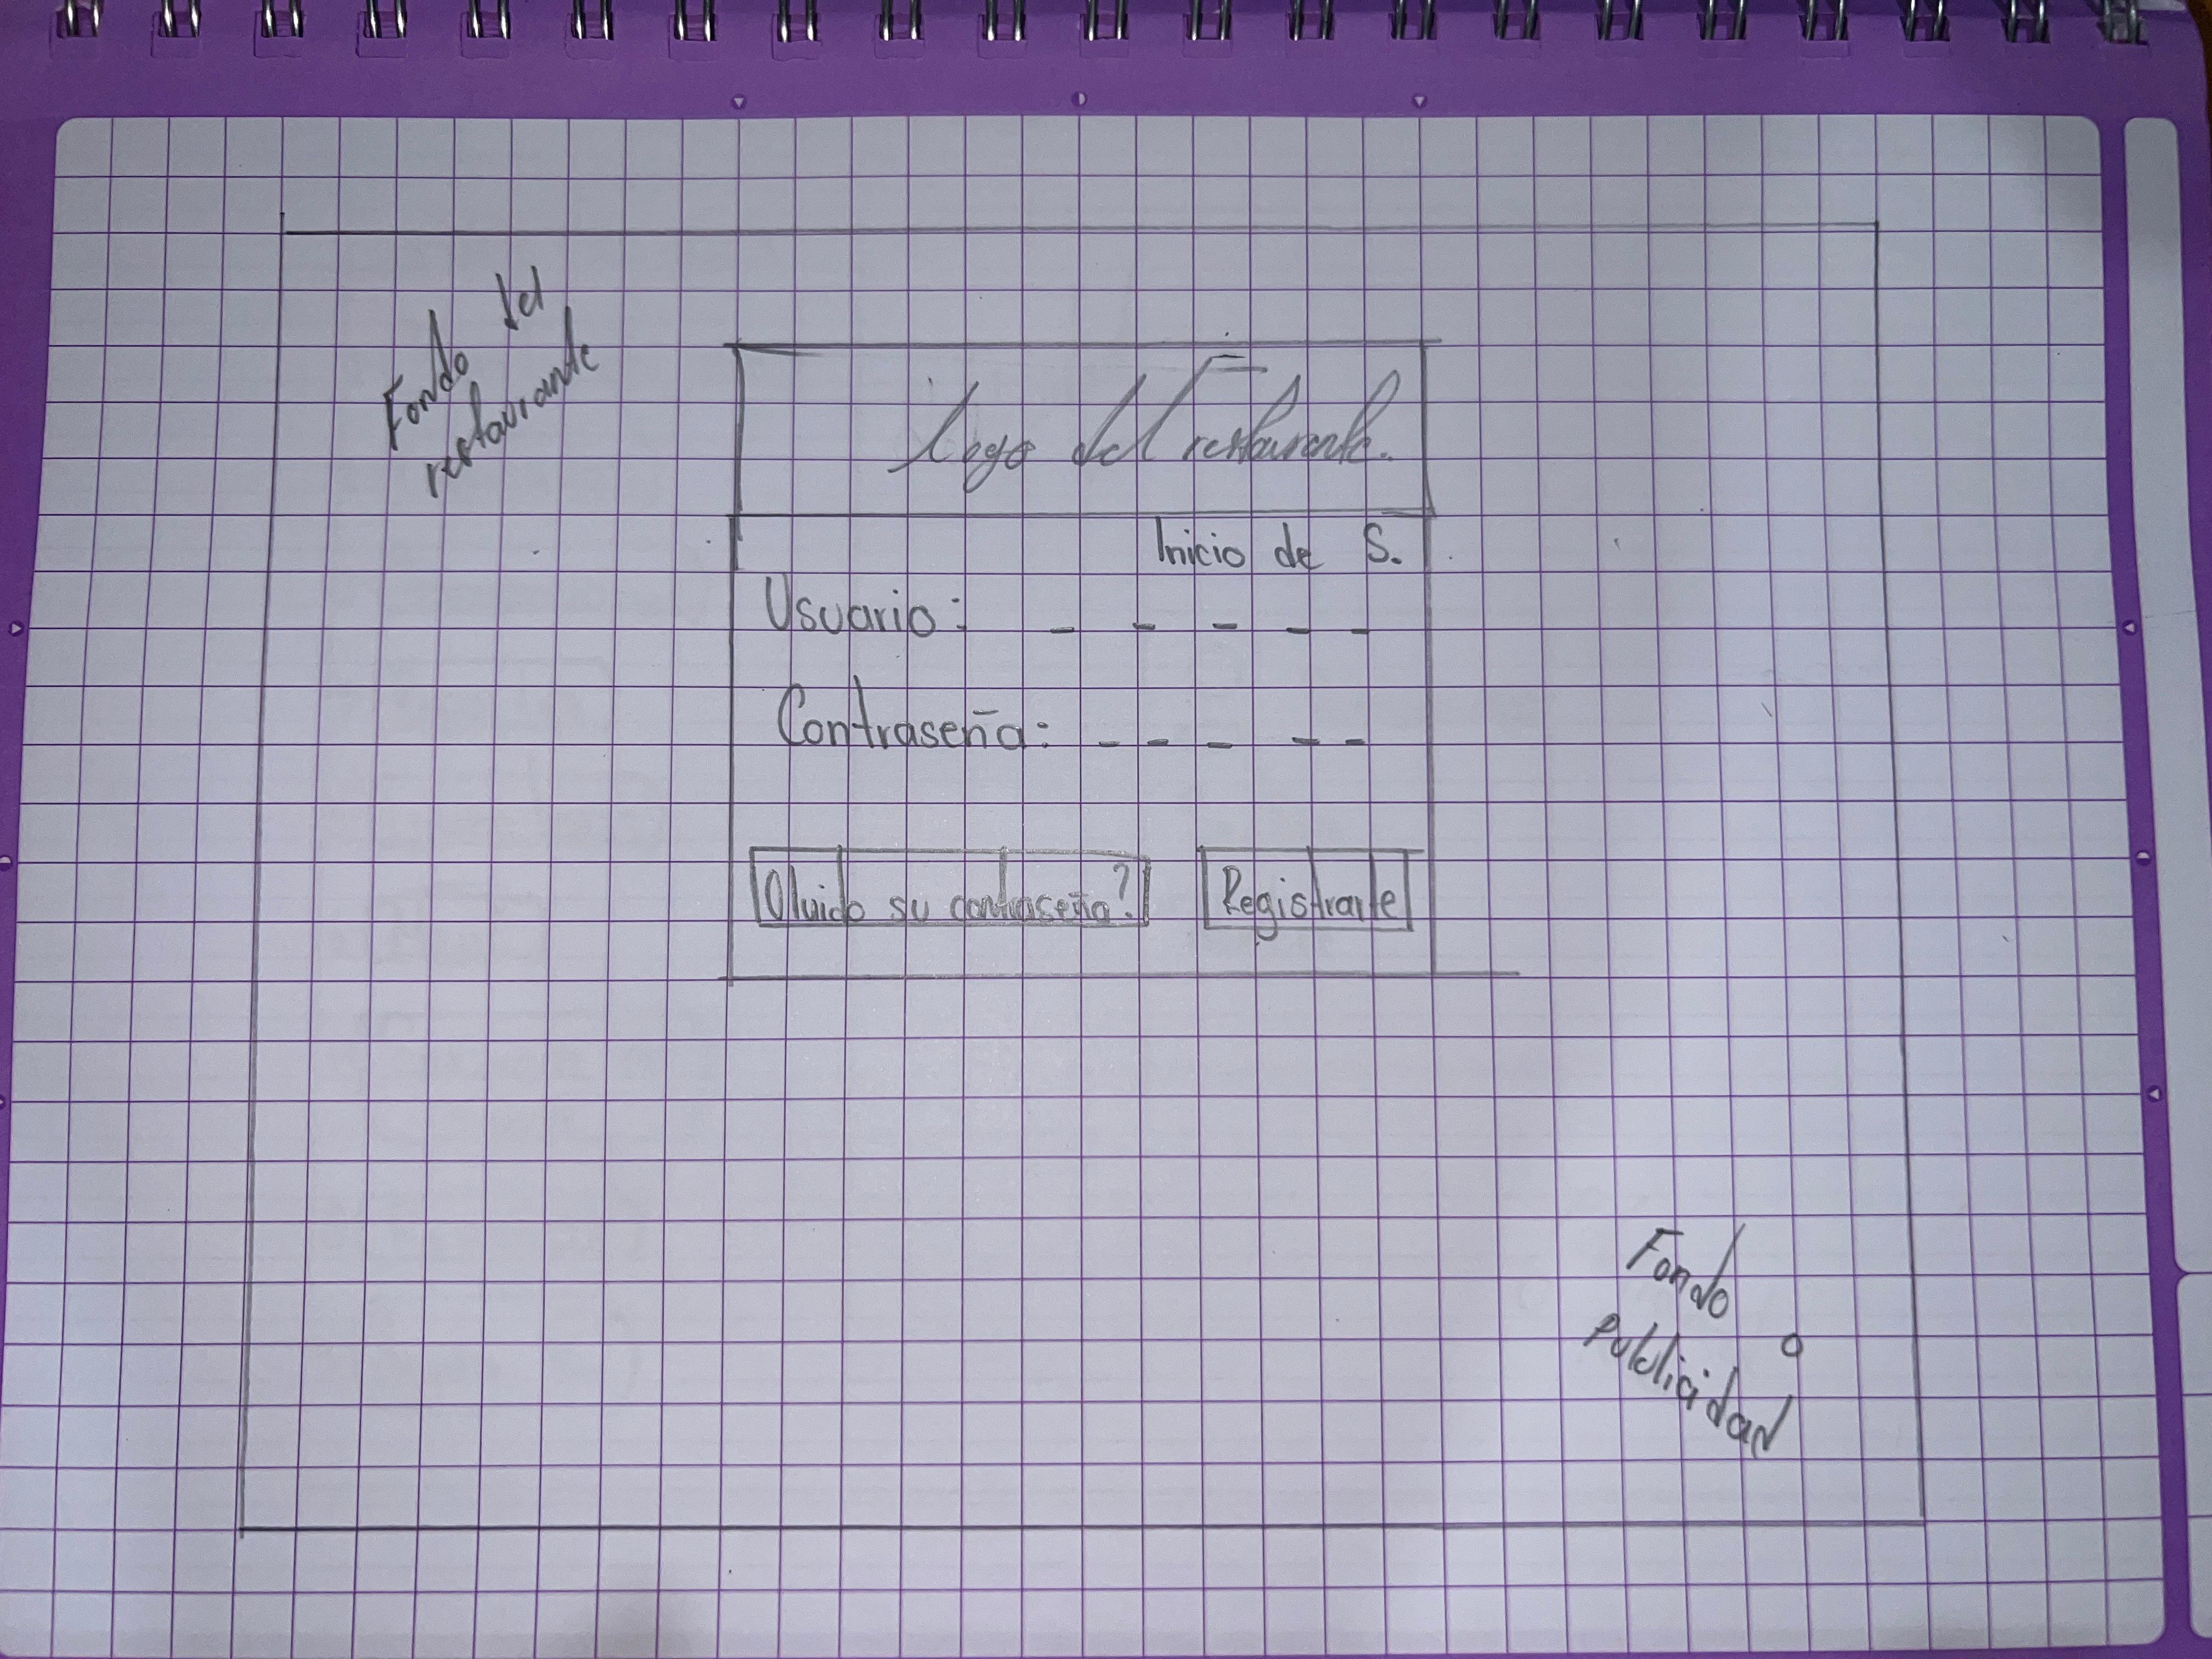 Fondo del
restaurante
Logo del restaurante.
Inicio de S.
Usuario: _ _ _ _ _
Contraseña: _ _ _ _ _
Olvido su contraseña?
Registrarte
Fondo o
Publicidad